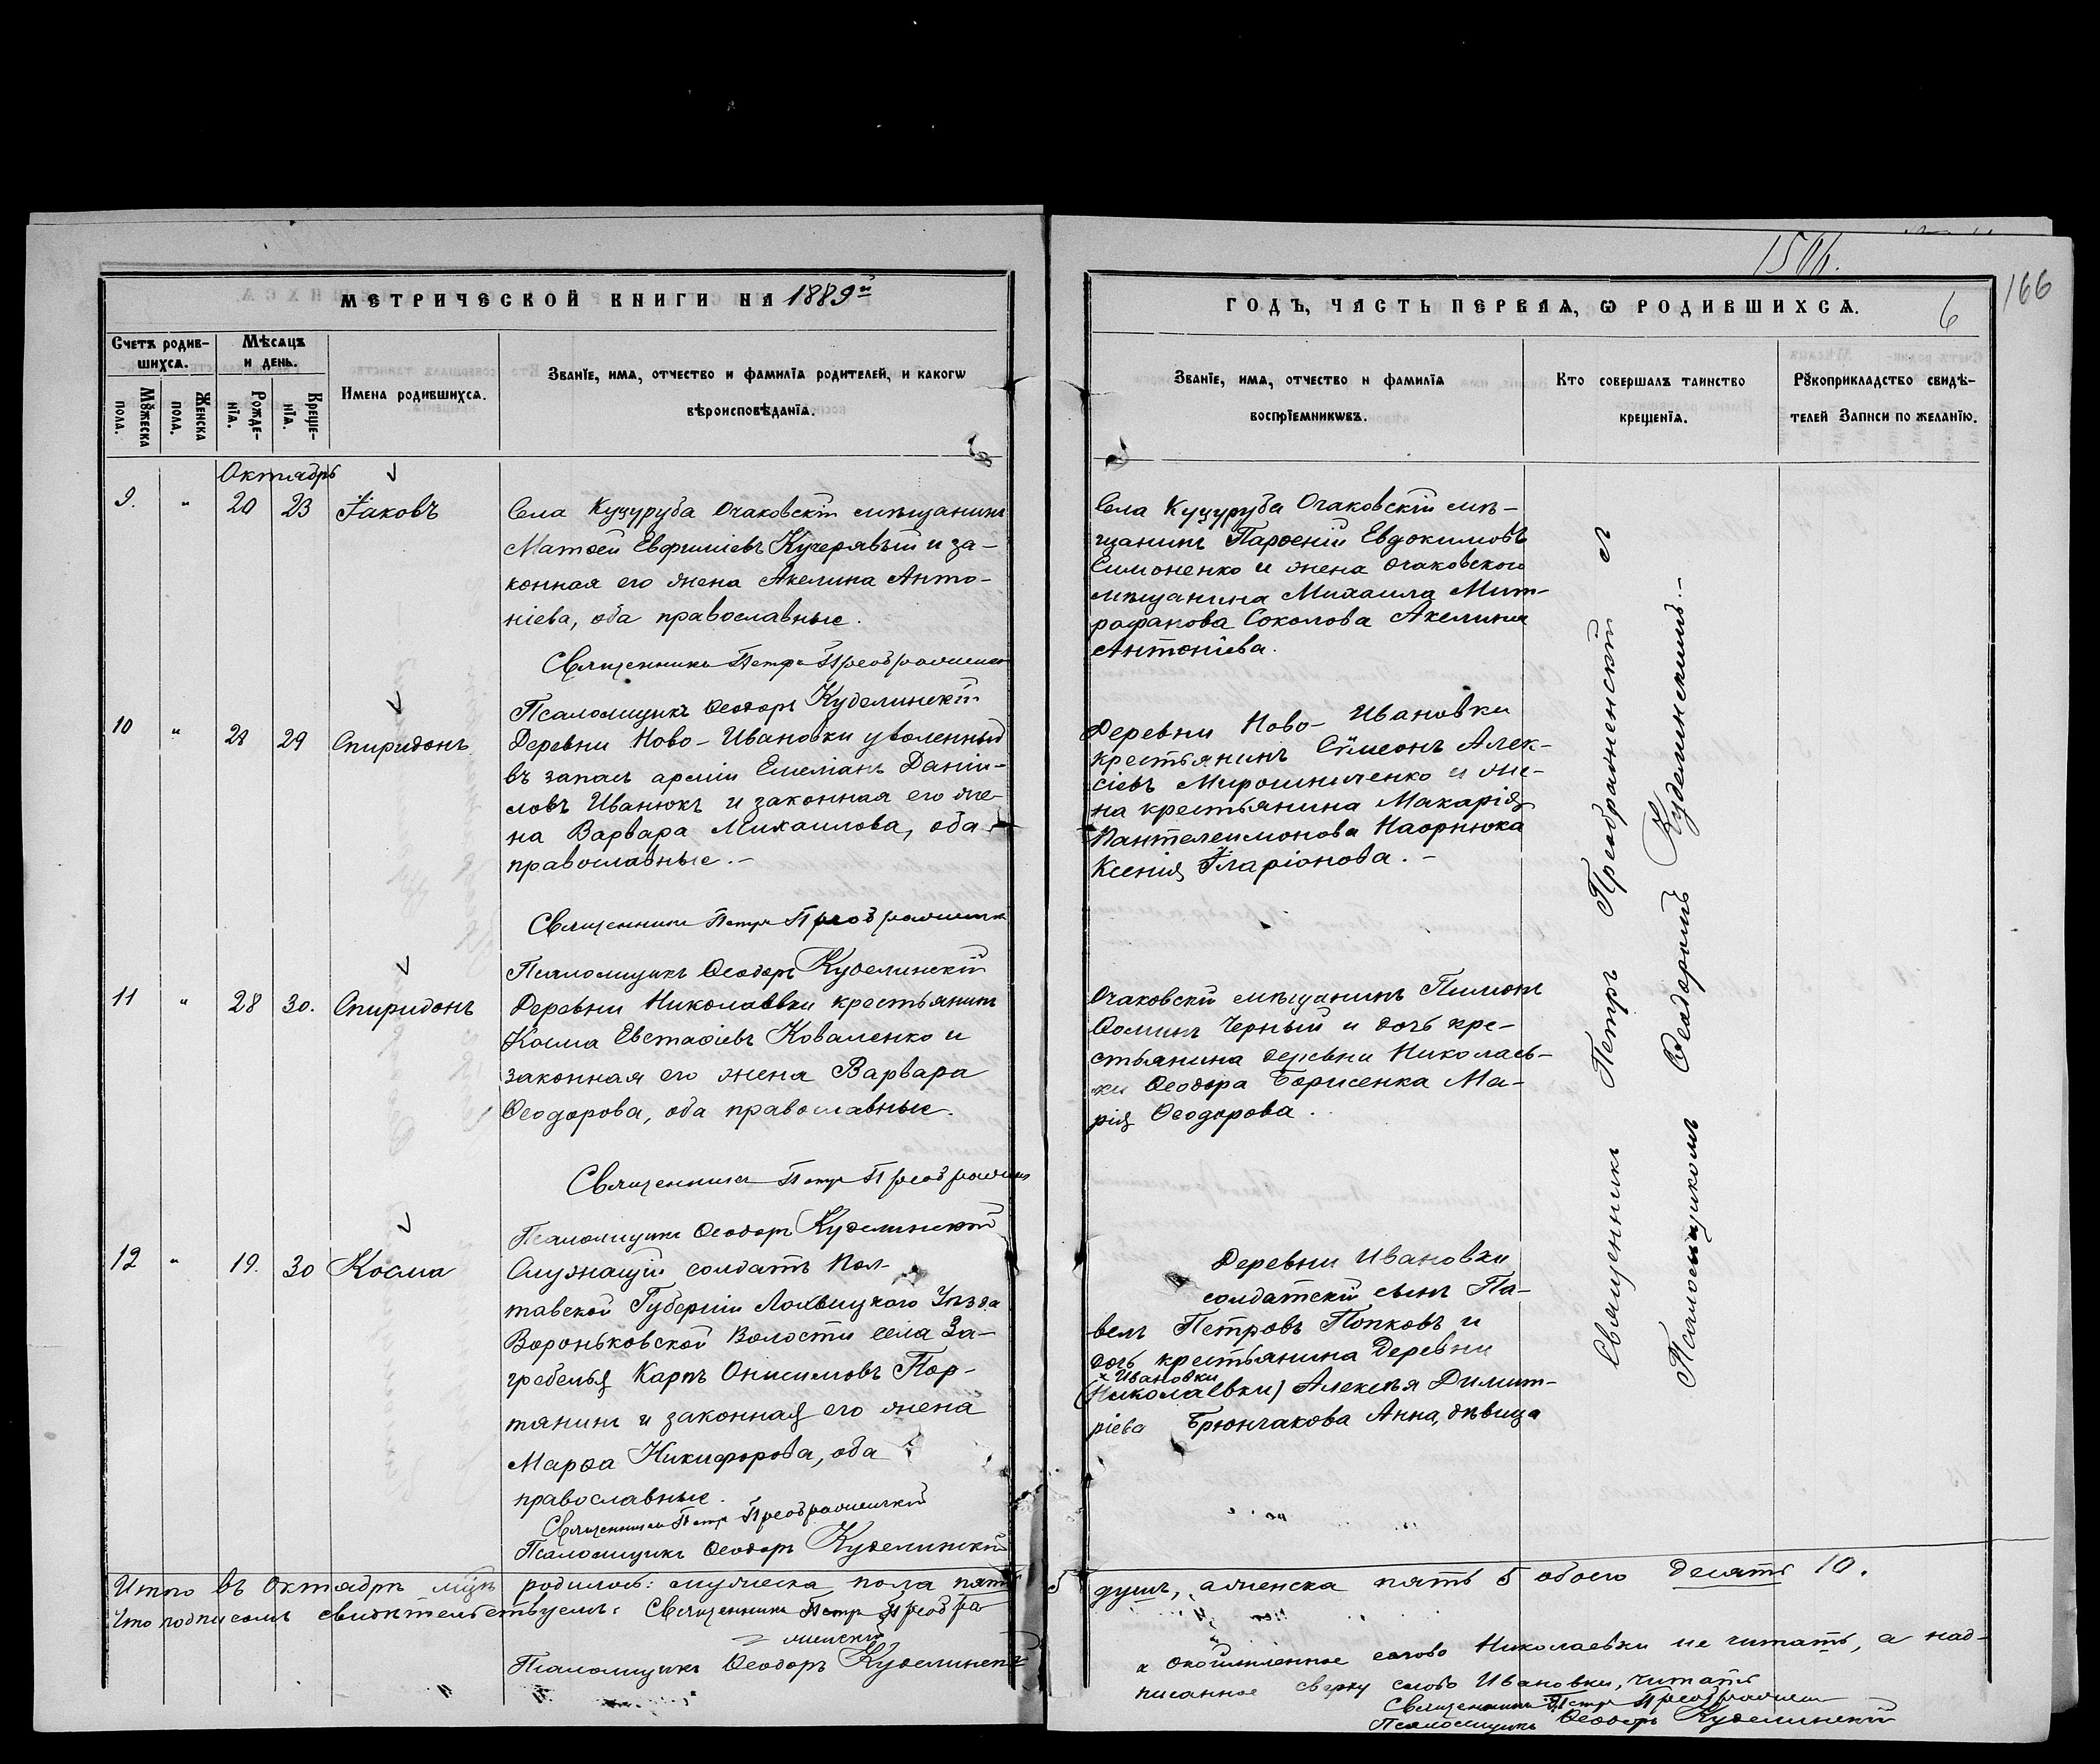 150б.
166
6
МЕТРИЧЕСКОЙ КНИГИ НА 1889й
ГОДЪ, ЧАСТЬ ПЕРВАЯ, Ѡ РОДИВШИХСѦ.
Счетъ родив-
шихсѧ.
Мѣсяцъ
и день.
Мужеска
пола.
Женска
пола.
Рожде-
нїѧ.
Креще-
нїѧ.
Имена родившихсѧ.
Званїе, имѧ, отчество и фамилїѧ родителей, и какогѡ
вѣроисповѣданїѧ.
Званїе, имѧ, отчество и фамилїѧ
воспрїемникѡвъ.
Кто совершалъ таинство
крещенїѧ.
Рꙋкоприкладство свидѣ-
телей записи по желанїю.
Октябрь
9. " 20 23 Іаковъ
Села Куцуруба Очаковскій мѣщанинъ
Матѳей Евфиміевъ Кучерявый и за-
конная его жена Акелина Анто-
ніева, оба православные.
Священникъ Петръ Преображенск
Псаломщикъ Ѳеодоръ Куделинскій
Села Куцуруба Очаковскій мѣ-
щанинъ Парѳеній Евдокимовъ
Симоненко и жена очаковского
мѣщанина Михаила Мит-
рофанова Соколова Акелина
Антоніева.
10 " 28 29 Спиридонъ
Деревни Ново-Ивановки уволенный
въ запасъ арміи Емеліанъ Даніи-
ловъ Иванюкъ и законная его же-
на Варвара Михаилова, оба
православные.-
Священникъ Петръ Преображенск
Псаломщикъ Ѳеодоръ Куделинскій
Деревни Ново-Ивановки
крестьянинъ Сѵмеонъ Алек-
сіевъ Мирошниченко и же-
на крестьянина Макарія
Пантелеимонова Наорнюка
Ксенія Іларіонова.-
11 " 28 30. Спиридонъ
Деревни Николаевки крестьянинъ
Косма Евстафіевъ Коваленко и
законная его жена Варвара
Ѳеодорова, оба православные.
Священникъ Петръ Преображенск
Псаломщикъ Ѳеодоръ Куделинскій
Очаковскій мѣщанинъ Пименъ
Ѳоминъ Черный и дочь кре-
стьянина деревни Николаев-
ки Ѳеодора Борисенка Ма-
рія Ѳеодорова.
12 " 19. 30 Косма
Служащій солдатъ Пол-
тавской Губерніи Лохвицкого Уѣзда
Вороньковской Волости села За-
гребелья Карпъ Онисимовъ Пор-
тянинъ и законная его жена
Марѳа Никифорова, оба
православные.
Священникъ Петръ Преображенскій
Псаломщикъ Ѳеодоръ Куделинскій
Деревни Ивановки
солдатскій сынъ Па-
велъ Петровъ Попковъ и
дочь крестьянина Деревни
х Ивановки
(Николаевки) Алексѣя Димит-
ріева Брюнчакова Анна, дѣвица
Священникъ Петръ Преображенскій с
Псаломщикомъ Ѳеодоромъ Куделинскимъ.-
Итого въ Октябрѣ мцѣ родилось: мужеска пола пять 5 душъ, а женска пять 5 обоего десять 10.
Что подписомъ свидѣтельствуемъ: Священникъ Петръ Преобра-
женскій
Псаломщикъ Ѳеодоръ Куделинскій
х окоймленное слово Николаевки не читать, а над-
писанное сверху слово Ивановки, читать
Священникъ Петръ Преображен
Псаломщикъ Ѳеодоръ Куделинскій